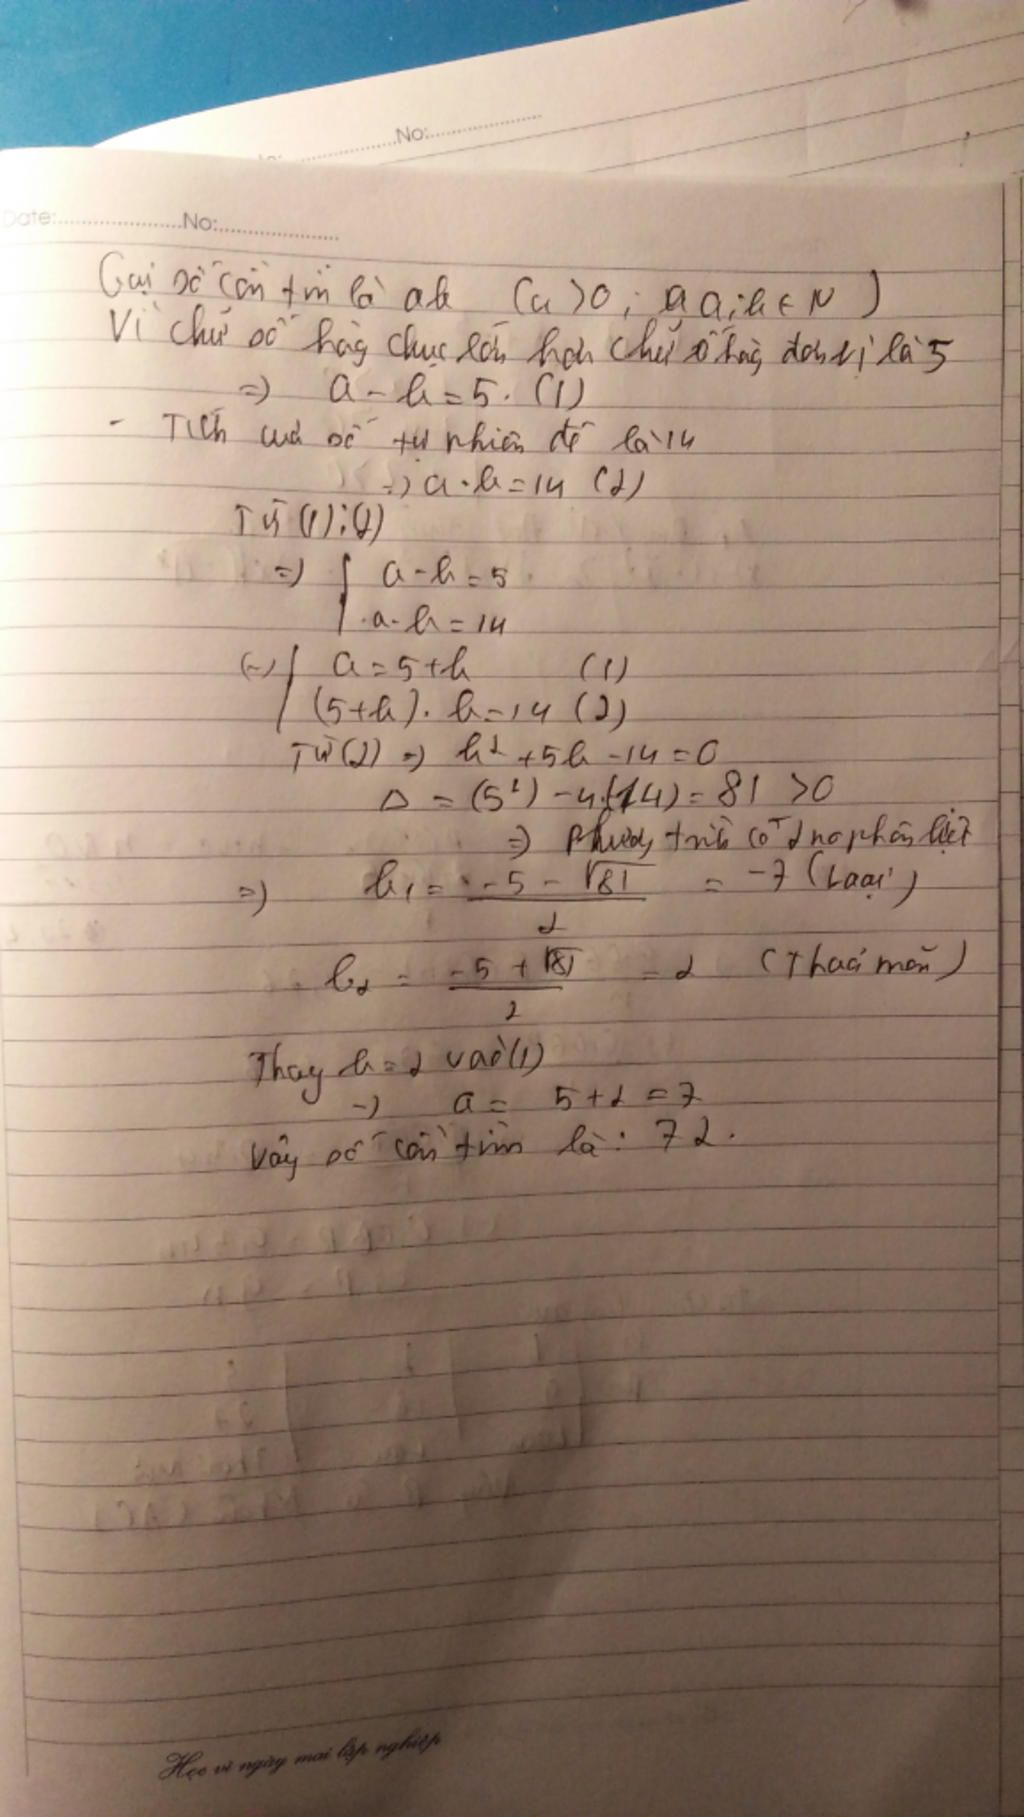 No:
Date: No:
Gọi số cần tìm là ab (a>0; a,b ∈ N)
Vì chữ số hàng chục lớn hơn chữ số hàng đơn vị là 5
=) a - b = 5. (1)
- Tích của số tự nhiên đó là 14
=) a.b = 14 (2)
Từ (1); (2)
=) { a - b = 5
a.b = 14
(=) { a = 5+b (1)
(5+b).b = 14 (2)
Từ (2) =) b² + 5b - 14 = 0
Δ = (5²) - 4.(-14) = 81 > 0
=) Phương trình có 2 no phân biệt
=) b₁ = -5 - √81 / 2 = -7 (Loại)
b₂ = -5 + √81 / 2 = 2 (Thoả mãn)
Thay b = 2 vào (1)
=) a = 5+2 = 7
Vậy số cần tìm là: 72.
Học vì ngày mai lập nghiệp